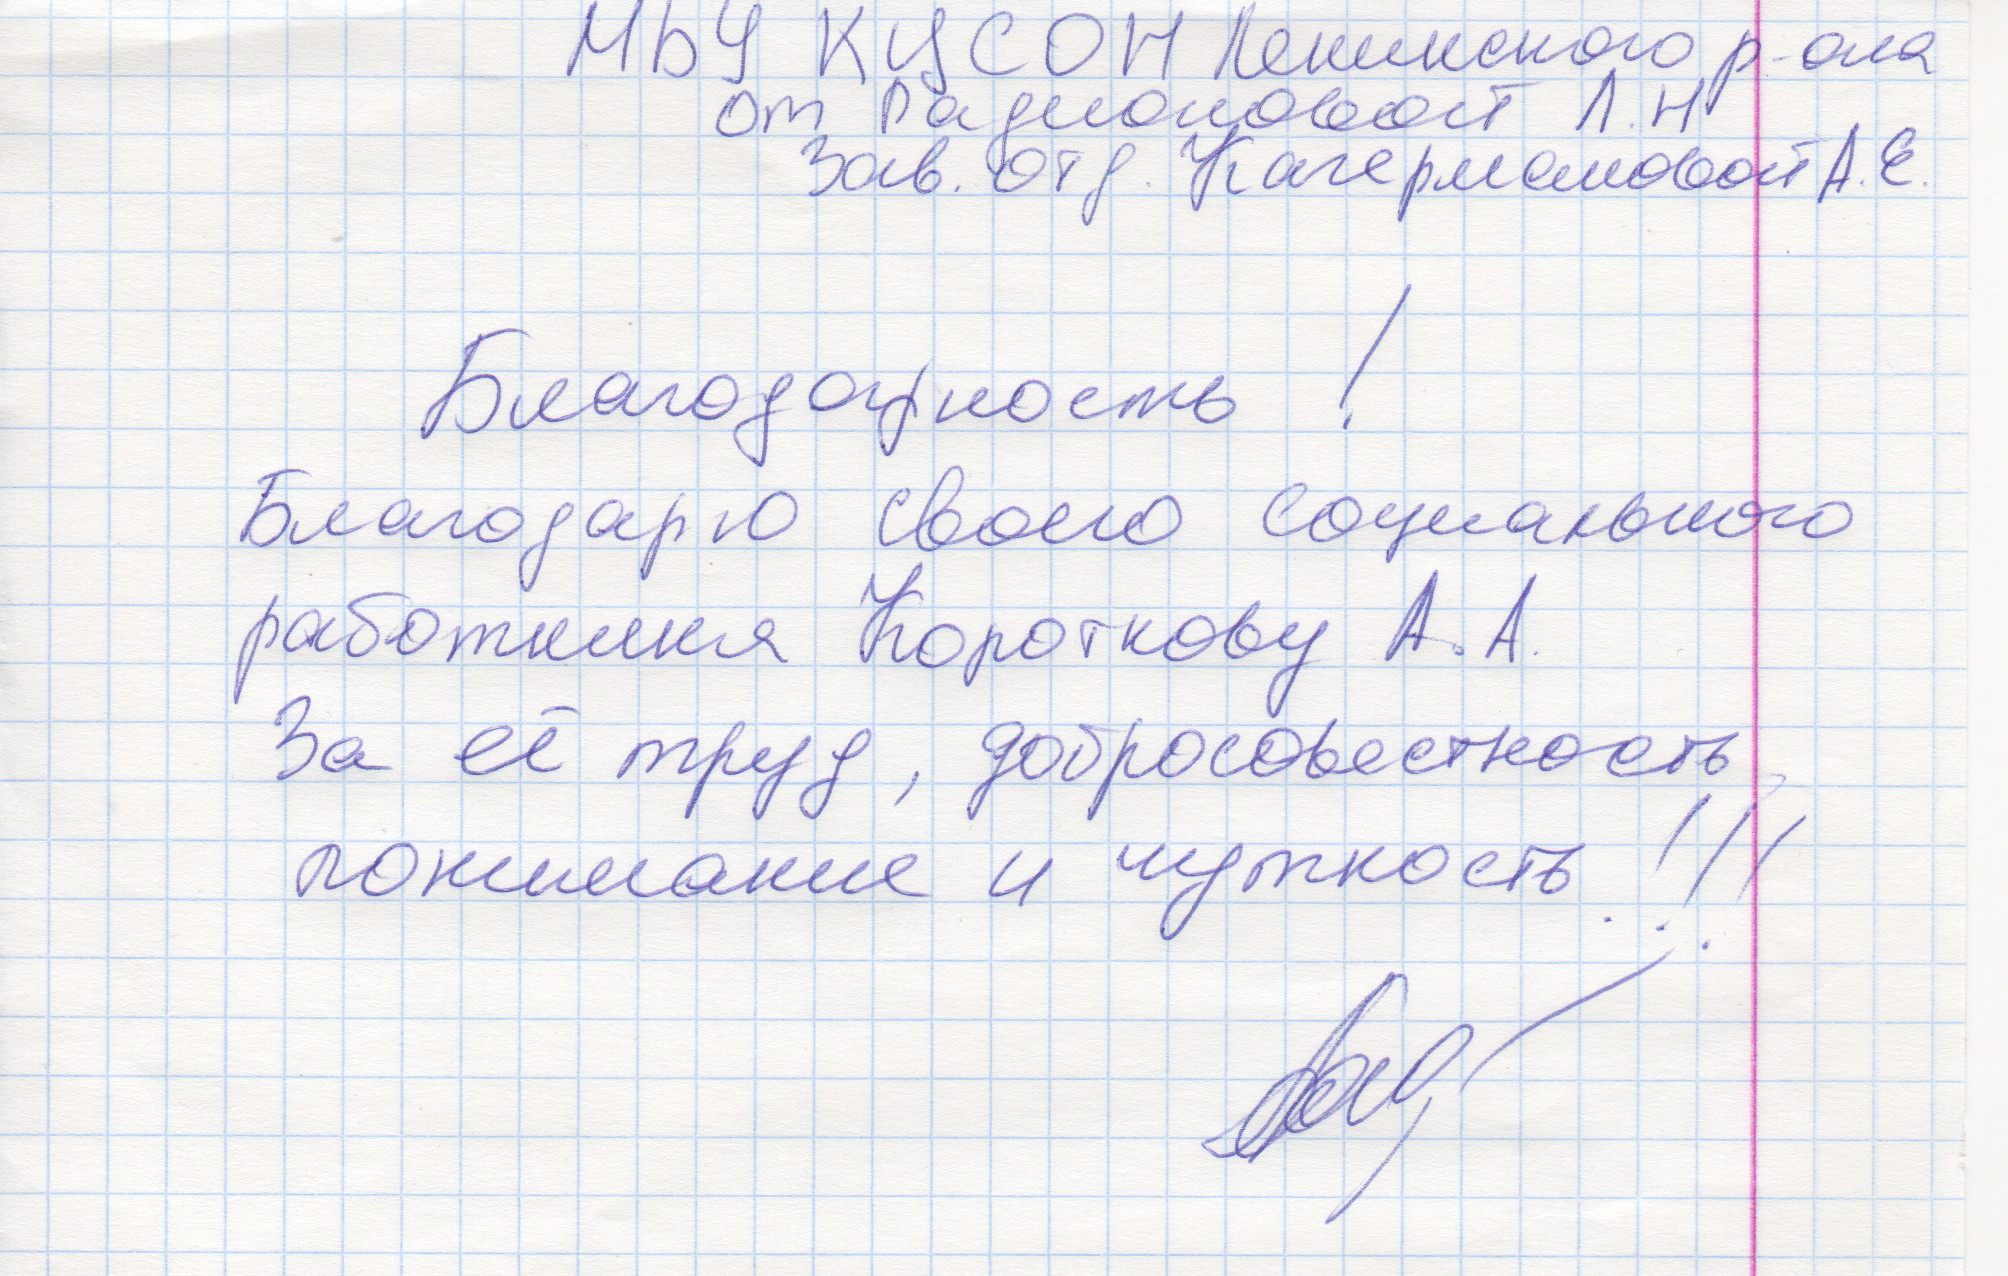 МБУ КЦСОН Ленинского р-она
от Радионовой Л.Н
Зав. отд. Кагермановой А.Е.
Благодарность!
Благодарю своего социального
работника Короткову А.А.
За её труд, добросовестность,
понимание и чуткость!!!